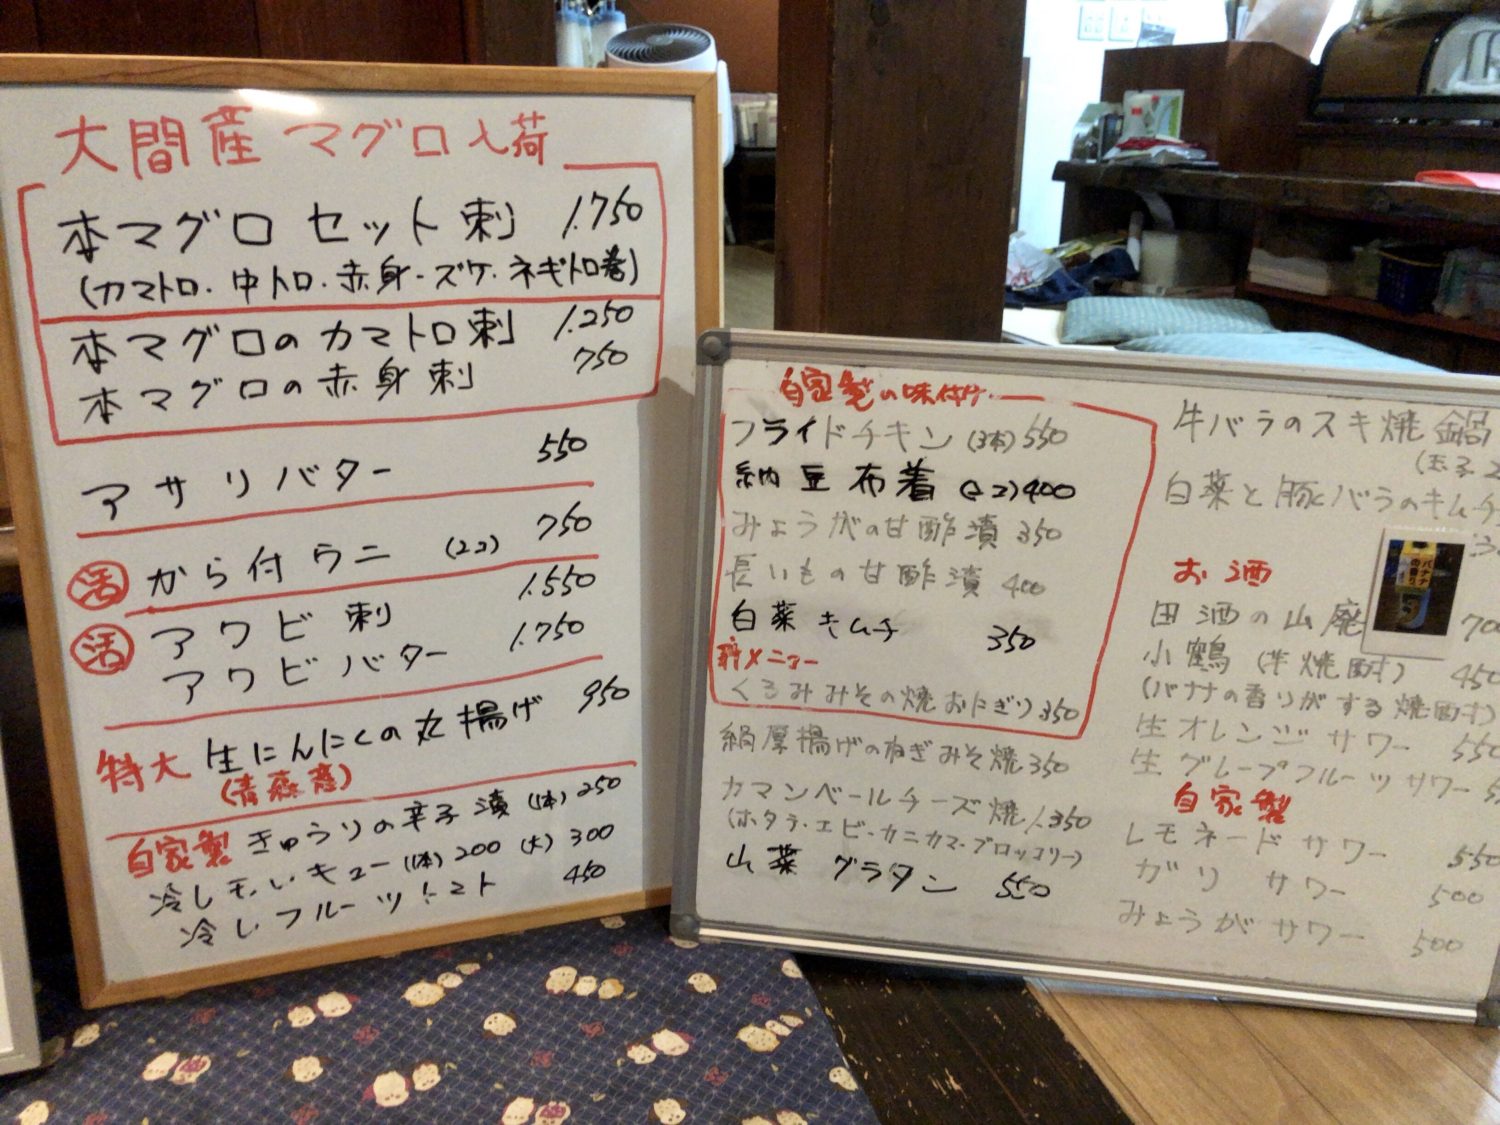 大間産 マグロ入荷
本マグロ セット刺 1.750
(カマトロ・中トロ・赤身・ズケ・ネギトロ巻)
本マグロのカマトロ刺 1.250
本マグロの赤身刺 750
アサリバター 550
活 から付ウニ (2コ) 750
活 アワビ刺 1.550
アワビバター 1.750
特大 生にんにくの丸揚げ 950
(青森産)
自家製 きゅうりの辛子漬 (1本) 250
冷しモ、いキュー (1本) 200 (大) 300
冷しフルーツトマト 450
自家製の味付け
フライドチキン (3本) 550
納豆布着 (2コ) 400
みょうがの甘酢漬 350
長いもの甘酢漬 400
白菜キムチ 350
新メニュー
くるみみその焼おにぎり 350
絹厚揚げのねぎみそ焼 350
カマンベールチーズ焼 1.350
(ホタテ・エビ・カニカマ・ブロッコリー)
山菜グラタン 550
牛バラのスキ焼鍋
(玉子2
白菜と豚バラのキムチ
お酒
バナナの香り
田酒の山廃 700
小鶴 (芋焼酎) 450
(バナナの香りがする焼酎)
生オレンジサワー 550
生グレープフルーツサワー
自家製
レモネードサワー 550
ガリサワー 500
みょうがサワー 500